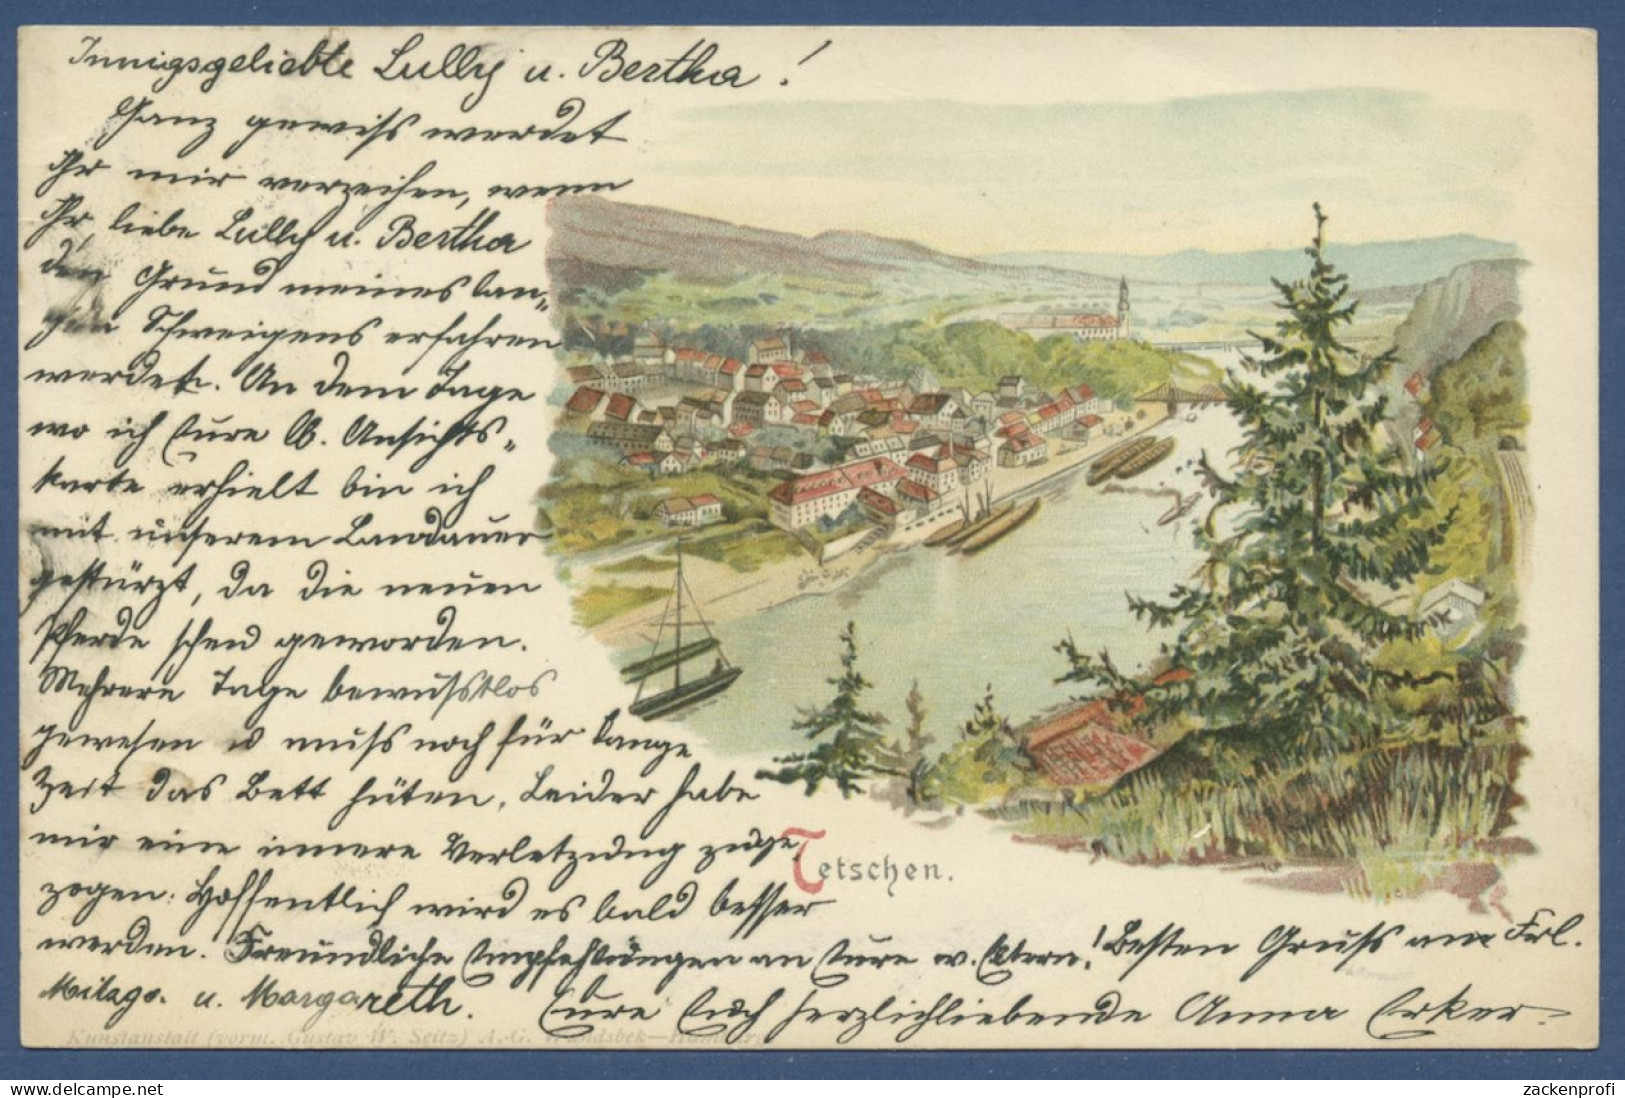 Innigsgeliebte Lully u. Bertha!
Ganz gewiss werdet
Ihr mir verzeihen, wenn
Ihr, liebe Lully u. Bertha
den Grund meines lan-
gen Schweigens erfahren
werdet. An dem Tage
wo ich Eure lb. Ansichts-
karte erhielt bin ich
mit unserem Landauer
gestürzt, da die neuen
Pferde scheu geworden.
Mehrere Tage bewusstlos
gewesen u muss noch für lange
Zeit das Bett hüten. Leider habe
mir eine innere Verletzung zuge-
zogen. Hoffentlich wird es bald besser
werden. Freundliche Empfehlungen an Eure w. Eltern! Besten Gruss an Frl.
Milago. u. Margareth. Eure Euch herzlichliebende Anna Erker.
Tetschen.
Kunstanstalt (vorm. Gustav W. Seitz) A.-G. Wandsbek—Hamburg
delcampe.net
zackenprofi